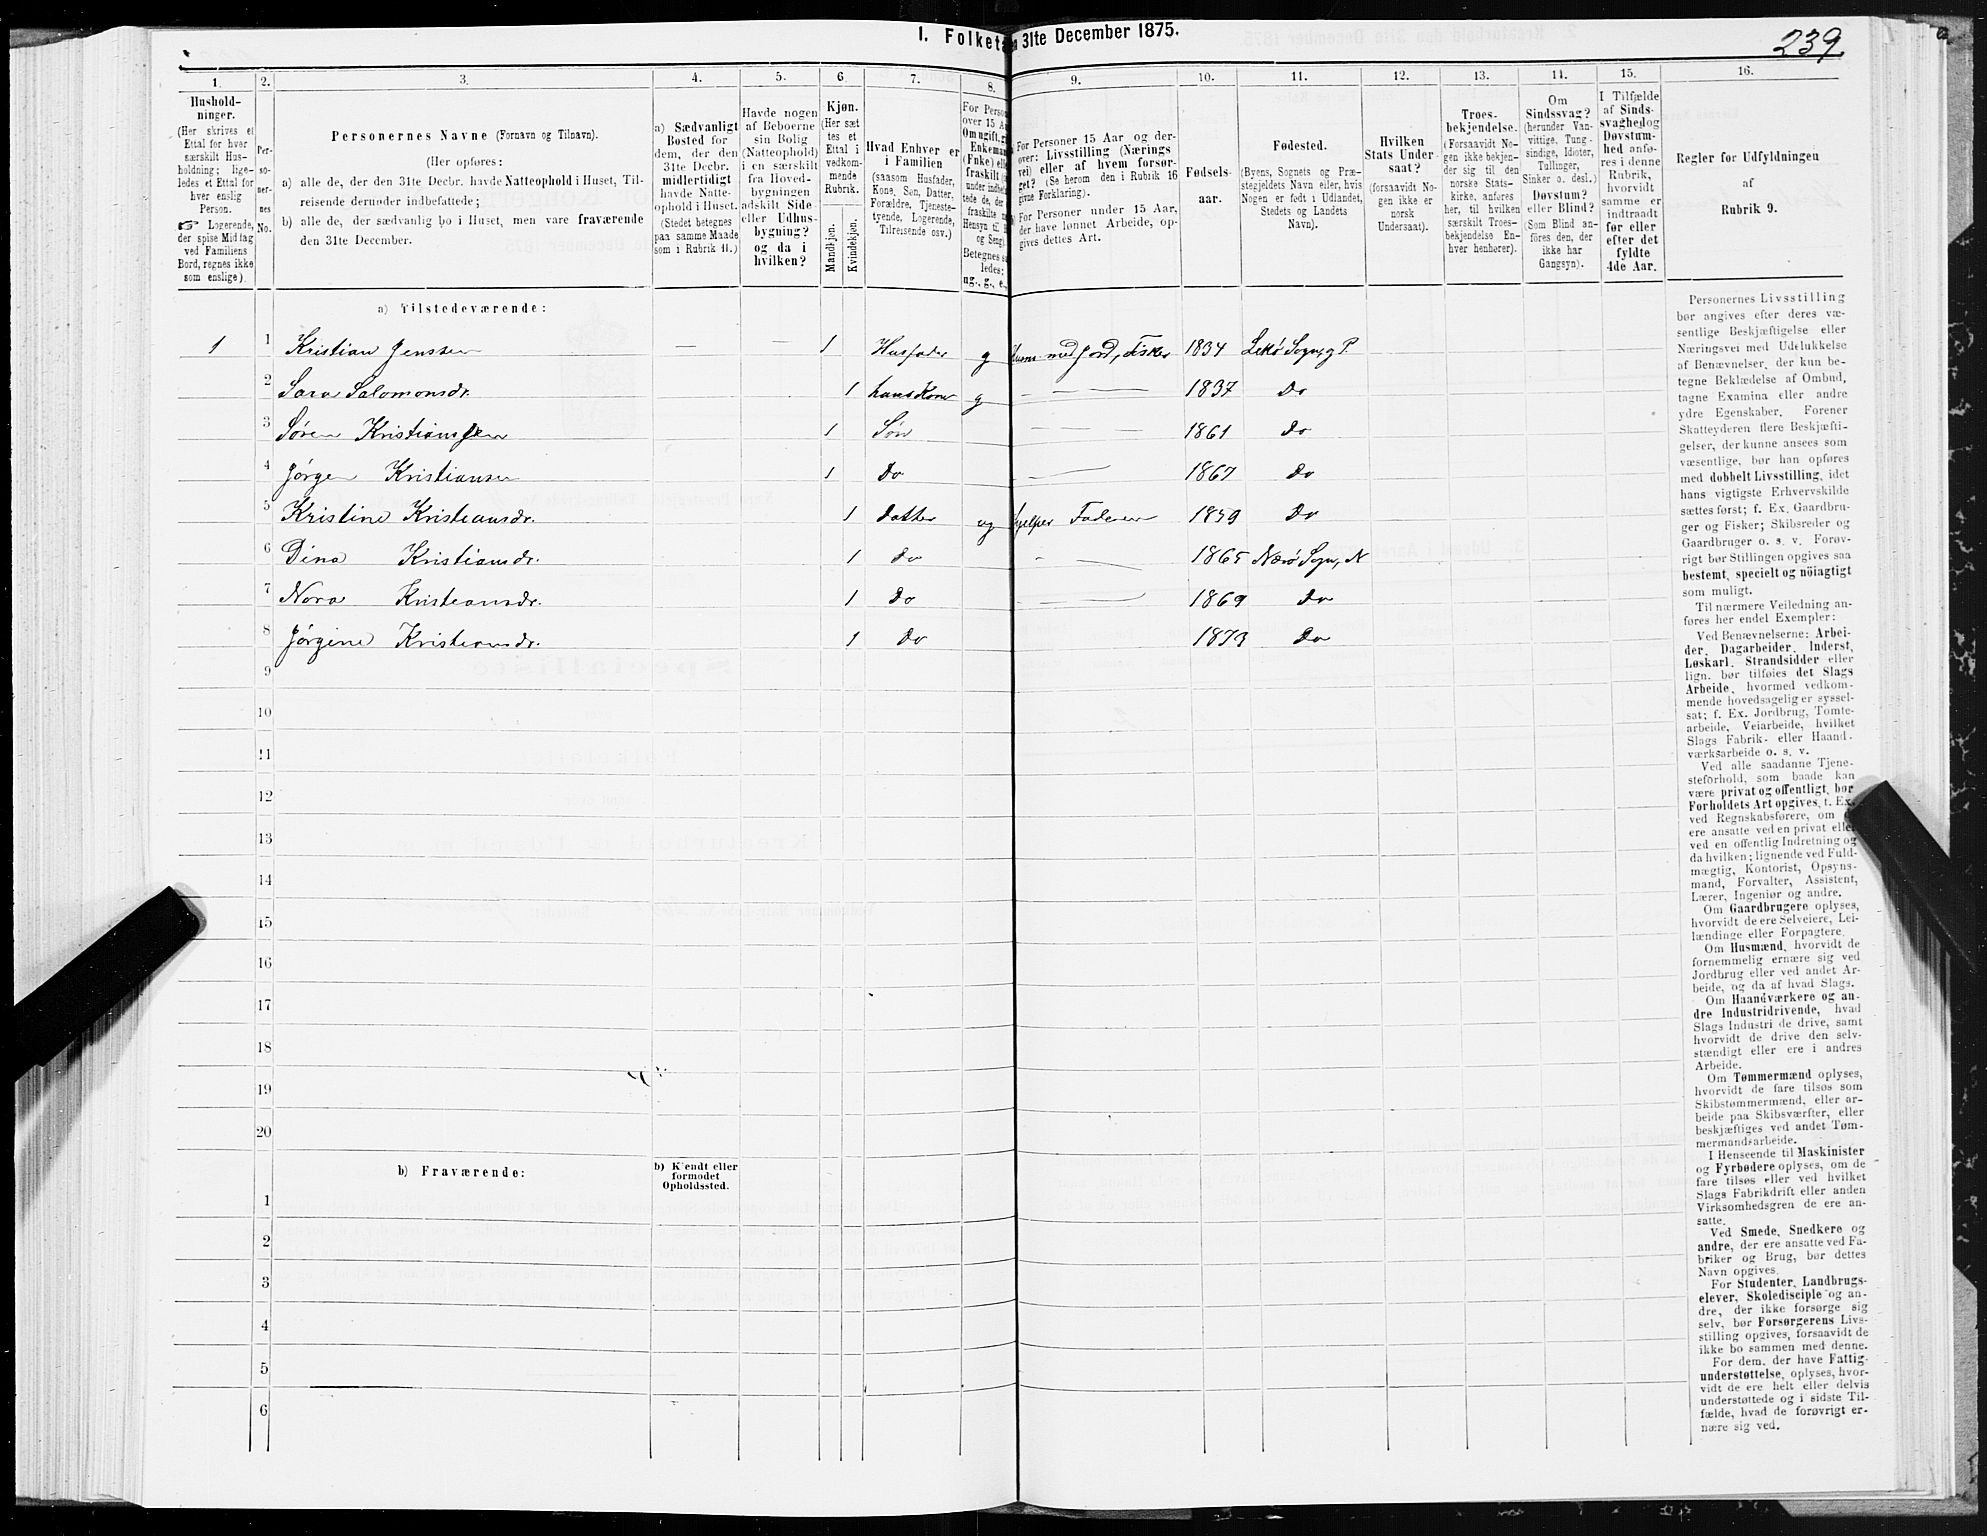 I. Folketæ 31te December 1875.
239
1.
2.
3.
4.
5.
6.
7.
8.
9.
10.
11.
12.
13.
14.
15.
16.
Hushold-
ninger.
(Her skrives et
Ettal for hver
særskilt Hus-
holdning; lige-
ledes et Ettal for
hver enslig
Person.
☞ Logerende,
der spise Middag
ved Familiens
Bord, regnes ikke
som enslige).
Per-
so-
ner-
nes
No.
Personernes Navne (Fornavn og Tilnavn).
(Her opføres:
a) alle de, der den 31te Decbr. havde Natteophold i Huset, Til-
reisende derunder indbefattede;
b) alle de, der sædvanlig bo i Huset, men vare fraværende
den 31te December.
a) Sædvanligt
Bosted for
dem, der den
31te Decbr.
midlertidigt
havde Natte-
ophold i Huset.
(Stedet betegnes
paa samme Maade
som i Rubrik 11.)
Havde nogen
af Beboerne
sin Bolig
(Natteophold)
i en særskilt
fra Hoved-
bygningen
adskilt Side-
eller Udhus-
bygning?
og da i
hvilken?
Kjøn.
(Her sæt
tes et
Ettal i
vedkom-
mende
Rubrik.
Mandkjøn.
Kvindekjøn.
Hvad Enhver er
i Familien
(saasom Husfader,
Kone, Søn, Datter,
Forældre, Tjeneste-
tyende, Logerende,
Tilreisende osv.)
For Perso
over 15 A
Om ugift, gi
Enkeman
(Fnke) elle
fraskilt (
under indbef
tede de, de
fraskilte
Hensyn ti
og Seng).
Betegnes s
ledes:
ug., g., e.,
For Personer 15 Aar og der-
over: Livsstilling (Nærings
vei) eller af hvem forsør-
get? (Se herom den i Rubrik 16
givne Forklaring).
For Personer under 15 Aar,
der have lønnet Arbeide, op-
gives dettes Art.
Fødsels-
aar.
Fødested.
(Byens, Sognets og Præ-
stegjeldets Navn eller, hvis
Nogen er født i Udlandet,
Stedets og Landets
Navn).
Hvilken
Stats Under
saat?
(forsaavidt No-
gen ikke er
norsk
Undersaat).
Troes-
bekjendelse.
(Forsaavidt No-
gen ikke bekjen-
der sig til den
norske Stats-
kirke, anføres
her, til hvilken
særskilt Troes-
bekjendelse En-
hver henhører).
Om
Sindssvag?
(herunder Van-
vittige, Tung-
sindige, Idioter,
Tullinger,
Sinker o. desl.)
Døvstum?
eller Blind?
(Som Blind an-
føres den, der
ikke har
Gangsyn).
I Tilfælde
af Sinds-
svaghed og
Døvstum-
hed anfø-
res i denne
Rubrik,
hvorvidt
samme er
indtraadt
før eller
efter det
fyldte
4de Aar.
Regler for Udfyldningen
af
Rubrik 9.
a) Tilstedeværende:
1 1 Kristian Jenssen — — 1 Husfader g med Jord, Fisker 1834 Lekø Sogn, g P.
2 Sara Salomonsdr. 1 hans Kone g 1837 Do
3 Søren Kristiansen 1 Søn 1861 Do
4 Jørgen Kristiansen 1 Do 1867 Do
5 Kristine Kristiansdr. 1 Datter ug hjelper Faderen 1859 Do
6 Dina Kristiansdr. 1 Do 1865 Nærø Sogn, N
7 Nora Kristiansdr. 1 Do 1869 Do
8 Jørgine Kristiansdr. 1 Do 1873 Do
9
10
11
12
13
14
15
16
17
18
19
20
b) Fraværende:
b) Kjendt eller
formodet
Opholdssted.
1
2
3
4
5
6
Personernes Livsstilling
bør angives efter deres væ-
sentlige Beskjæftigelse eller
Næringsvei med Udelukkelse
af Benævnelser, der kun be-
tegne Beklædelse af Ombud,
tagne Examina eller andre
ydre Egenskaber. Forener
Skatteyderen flere Beskjæfti-
gelser, der kunne ansees som
væsentlige, bør han opføres
med dobbelt Livsstilling, idet
hans vigtigste Erhvervskilde
sættes først; f. Ex. Gaardbru-
ger og Fisker; Skibsreder og
Gaardbruger o. s. v. Forøv-
rigt bør Stillingen opgives saa
bestemt, specielt og nöiagtigt
som muligt.
Til nærmere Veiledning an-
føres her endel Exempler:
Ved Benævnelserne: Arbei-
der, Dagarbeider, Inderst,
Løskarl, Strandsidder eller
lign. bør tilføies det Slags
Arbeide, hvormed vedkom-
mende hovedsagelig er syssel-
sat; f. Ex. Jordbrug, Tomte-
arbeide, Veiarbeide, hvilket
Slags Fabrik- eller Haand-
værksarbeide o. s. v.
Ved alle saadanne Tjene-
steforhold, som baade kan
være privat og offentligt, bør
Forholdets Art opgives, f. Ex.
ved Regnskabsførere, om
ere ansatte ved en privat eller
ved en offentlig Indretning og
da hvilken; lignende ved Fuld-
mægtig, Kontorist, Opsyns-
mand, Forvalter, Assistent,
Lærer, Ingeniør og andre.
Om Gaardbrugere oplyses,
hvorvidt de ere Selveiere, Lei-
lændinge eller Forpagtere.
Om Husmænd, hvorvidt de
fornemmelig ernære sig ved
Jordbrug eller ved andet Ar-
beide, og da af hvad Slags.
Om Haandværkere og an-
dre Industridrivende, hvad
Slags Industri de drive, samt
hvorvidt de drive den selv-
stændigt eller ere i andres
Arbeide.
Om Tømmermænd oplyses,
hvorvidt de fare tilsøs som
Skibstømmermænd, eller ar-
beide paa Skibsværfter, eller
beskjæftiges ved andet Tøm-
mermandsarbeide.
I Henseende til Maskinister
og Fyrbødere oplyses, om de
fare tilsøs eller ved hvilket
Slags Fabrikdrift eller anden
Virksomhedsgren de ere an-
satte.
Ved Smede, Snedkere og
andre, der ere ansatte ved Fa-
briker og Brug, bør dettes
Navn opgives.
For Studenter, Landbrugs-
elever, Skoledisciple og an-
dre, der ikke forsørge sig
selv, bør Forsørgerens Livs-
stilling opgives, forsaavidt de
ikke bo sammen med denne.
For dem, der have Fattig-
understøttelse, oplyses, hvor-
vidt de ere helt eller delvis
understøttede og i sidste Til-
fælde, hvad de forøvrigt er-
nære sig ved.